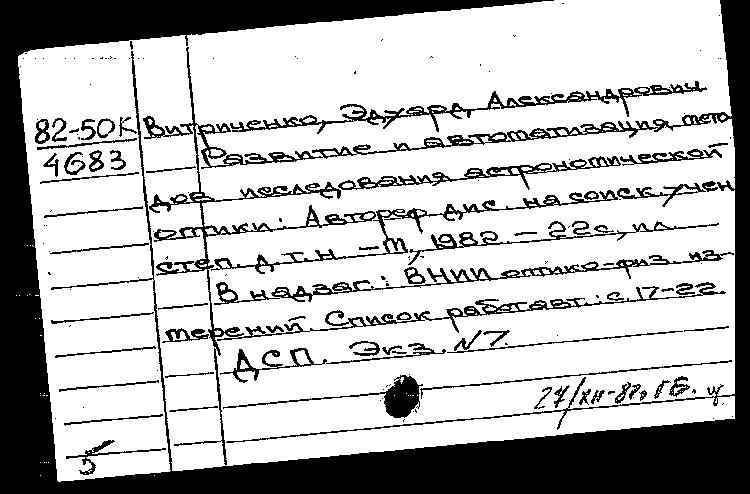 82-50К Витриченко, Эдуард Александрович
4683 Развитие и автоматизация мето
дов исследования астрономической
оптики: Автореф. дис. на соиск. учен
степ. д.т.н. – М., 1982. – 22с., ил.
В надзаг.: ВНИИ оптико-физ. из-
мерений. Список работ авт.: с. 17-22.
ДСП. Экз. №7.
27/XII-82. ГБ.
5